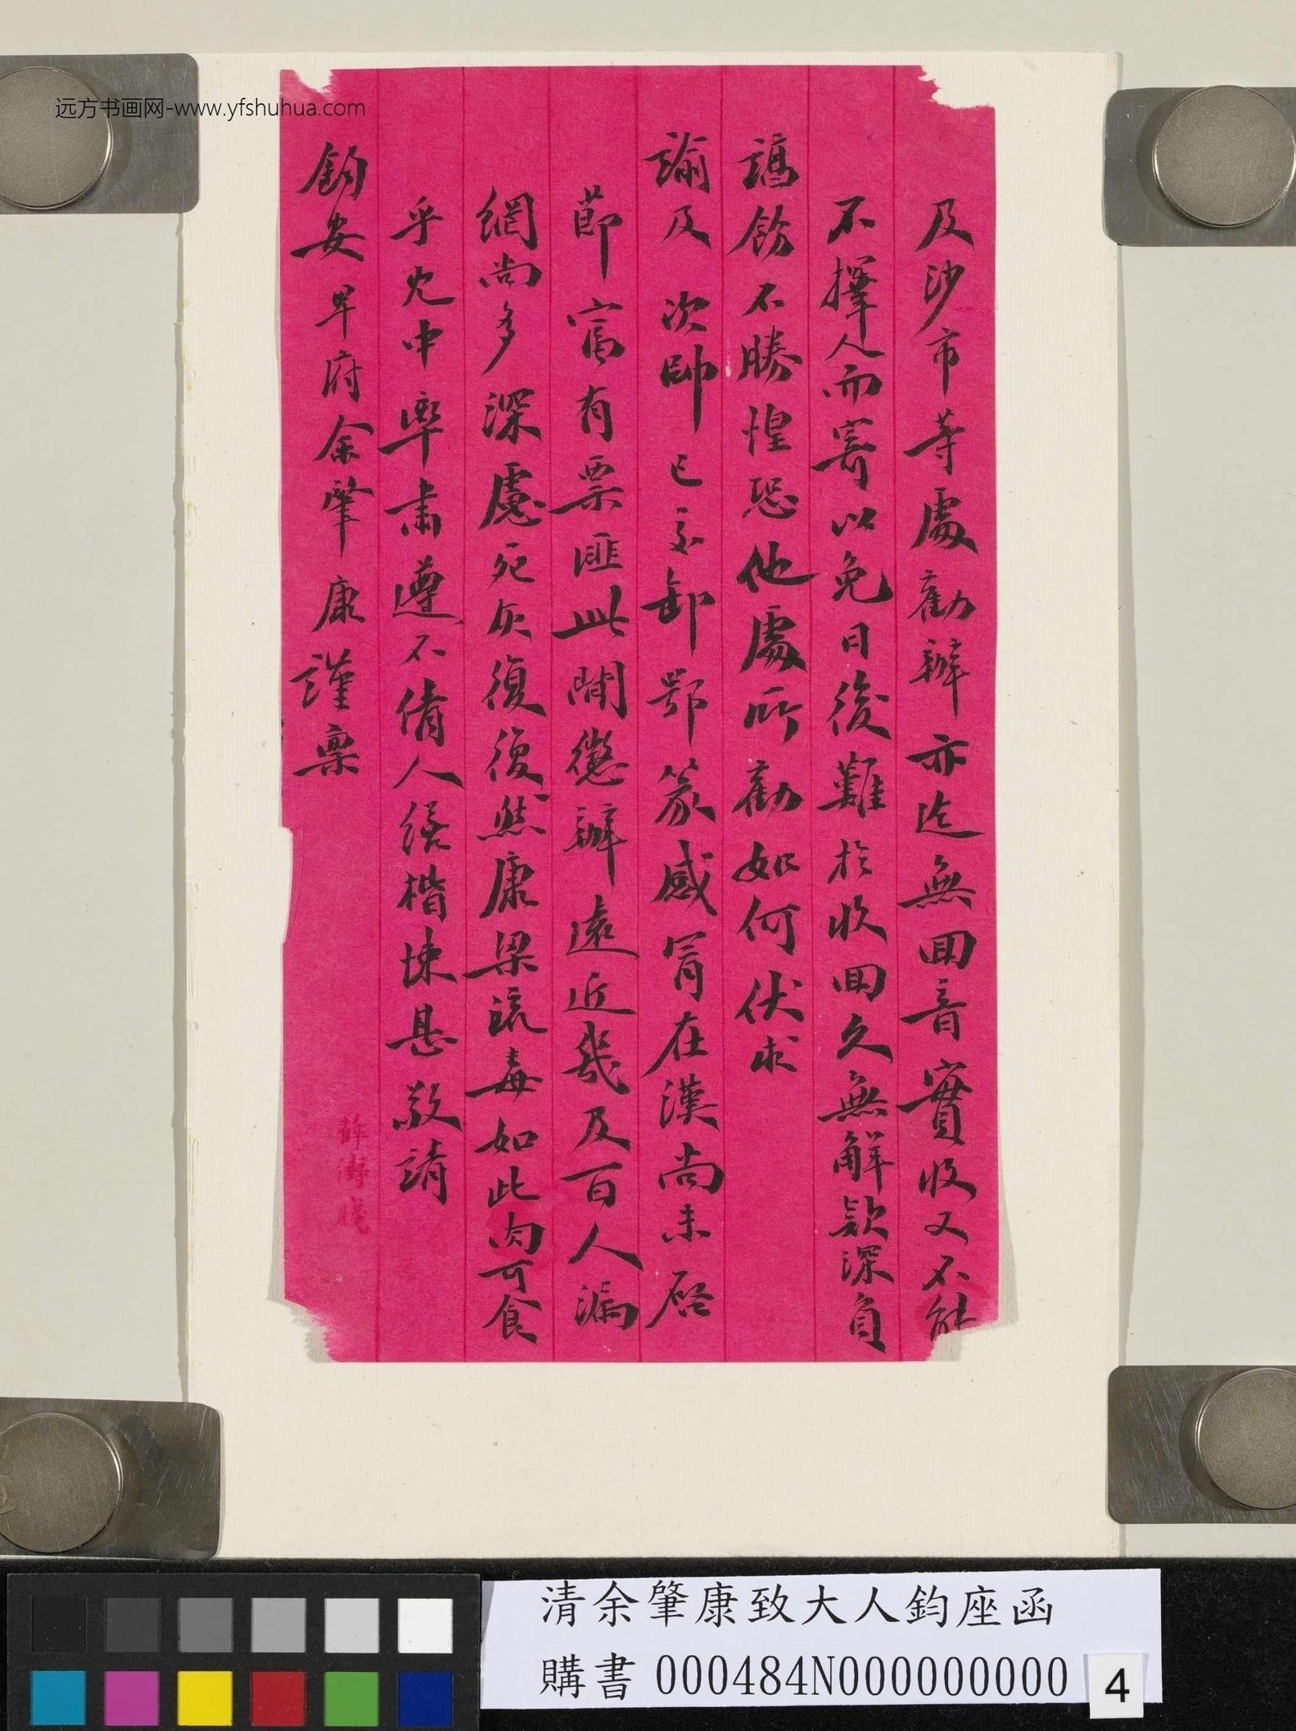 远方书画网-www.yfshuhua.com
及沙市等處勸辦亦迄無回音實收又不能
不擇人而寄以免日後難於收回久無解款深負
諉飭不勝惶恐他處所勸如何伏求
諭及 次帥已交卸鄂篆感冒在漢尚未啟
節富有票匪此間懲辦遠近幾及百人漏
網尚多深慮死灰復復然康梁疏毒如此肉可食
乎允中率肅遵不倩人繕楷悚息敬請
鈞安卑府余肇康謹稟
清余肇康致大人鈞座函
購書 000484N000000000
4